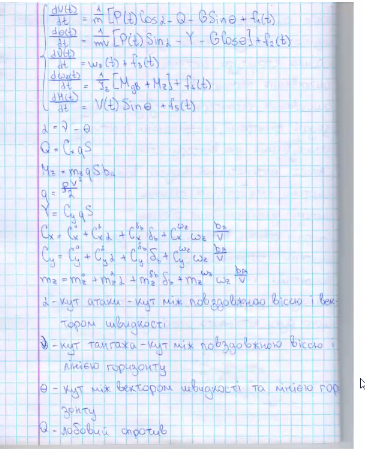 dV(t)/dt = 1/m [P(t)Cosα - Q - GSinθ + f₁(t)
dθ(t)/dt = 1/mV [P(t)Sinα - Y - GCosθ] + f₂(t)
dν(t)/dt = ω₂(t) + f₃(t)
dω₂(t)/dt = 1/J₂ [Mgb + M₂] + f₄(t)
dH(t)/dt = V(t)Sinθ + f₅(t)
α = ν - θ
Q = CₓqS
M₂ = m₂qSbₐ
q = ρV²/2
Y = CyqS
Cₓ = Cₓ⁰ + Cₓᵅα + Cₓ^δb δb + Cₓ^ω₂ ω₂ bₐ/V
Cy = Cy⁰ + Cyᵅα + Cy^δb δb + Cy^ω₂ ω₂ bₐ/V
m₂ = m₂⁰ + m₂ᵅα + m₂^δb δb + m₂^ω₂ ω₂ bₐ/V
α - кут атаки - кут між повздовжною віссю і век
тором швидкості
ν - кут тангажа - кут між повздовжною віссю і
лінією горизонту
θ - кут між вектором швидкості та лінією гори
зонту
Q - лобовий опротив